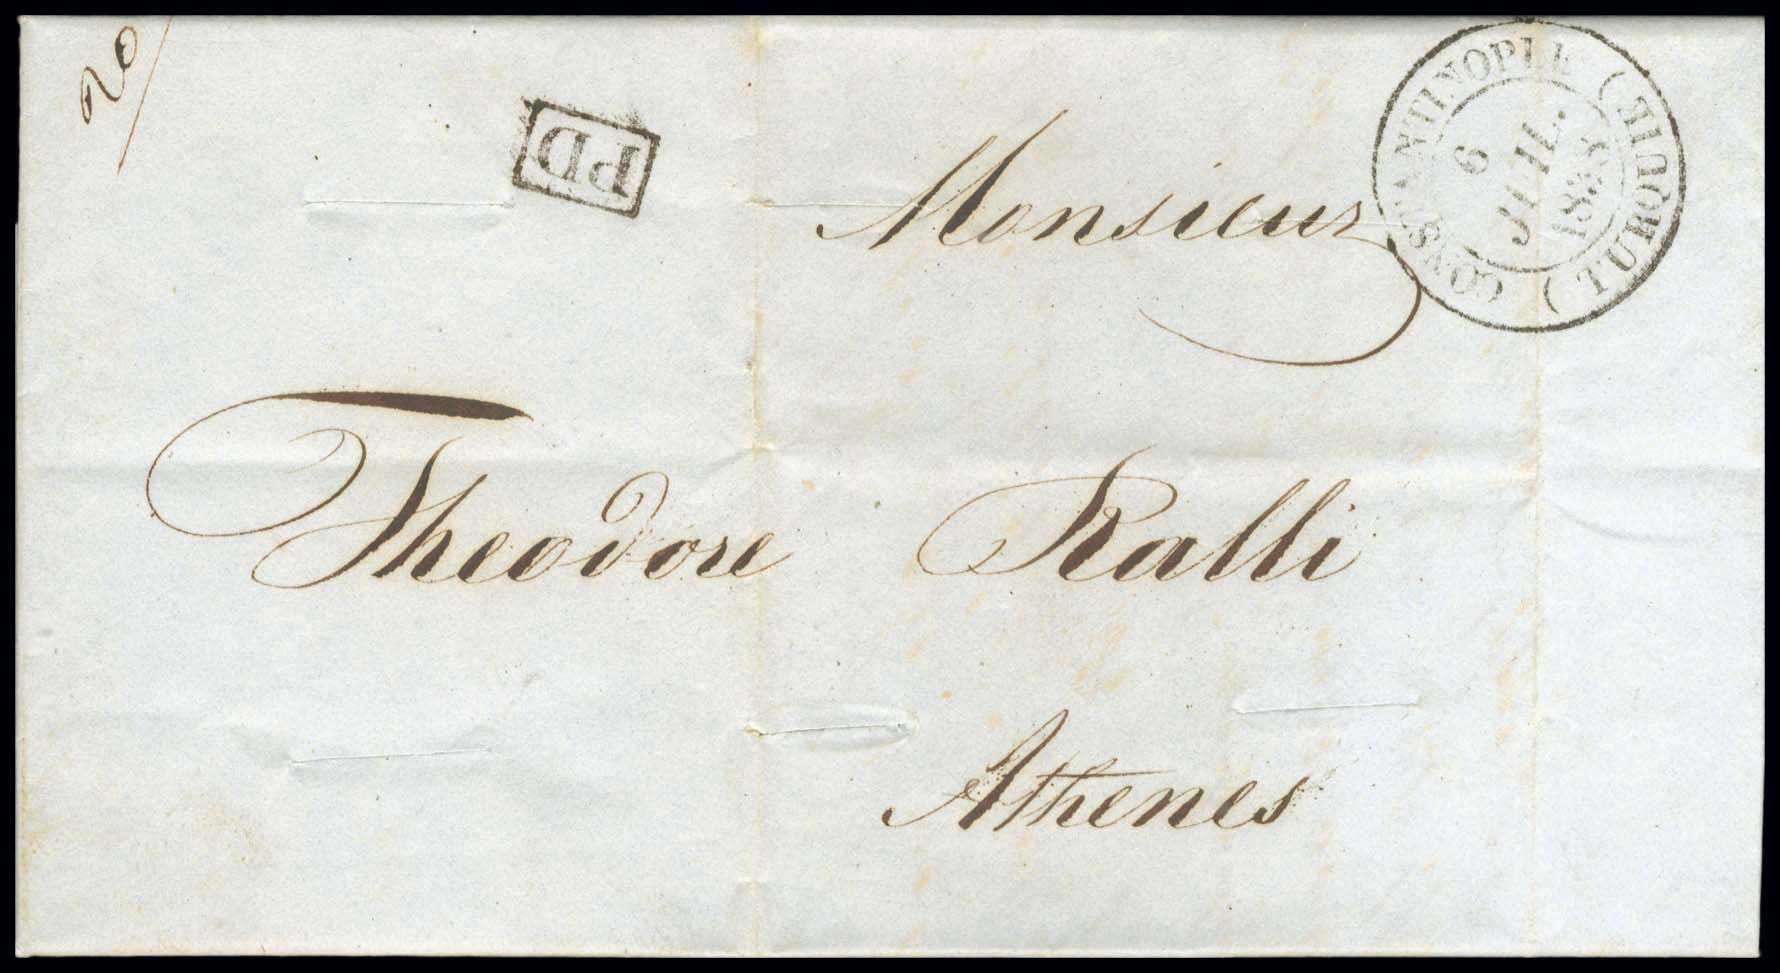 20
PD
CONSTANTINOPLE (TURQUIE)
6
JUIL.
1838
Monsieur
Theodore Ralli
Athenes